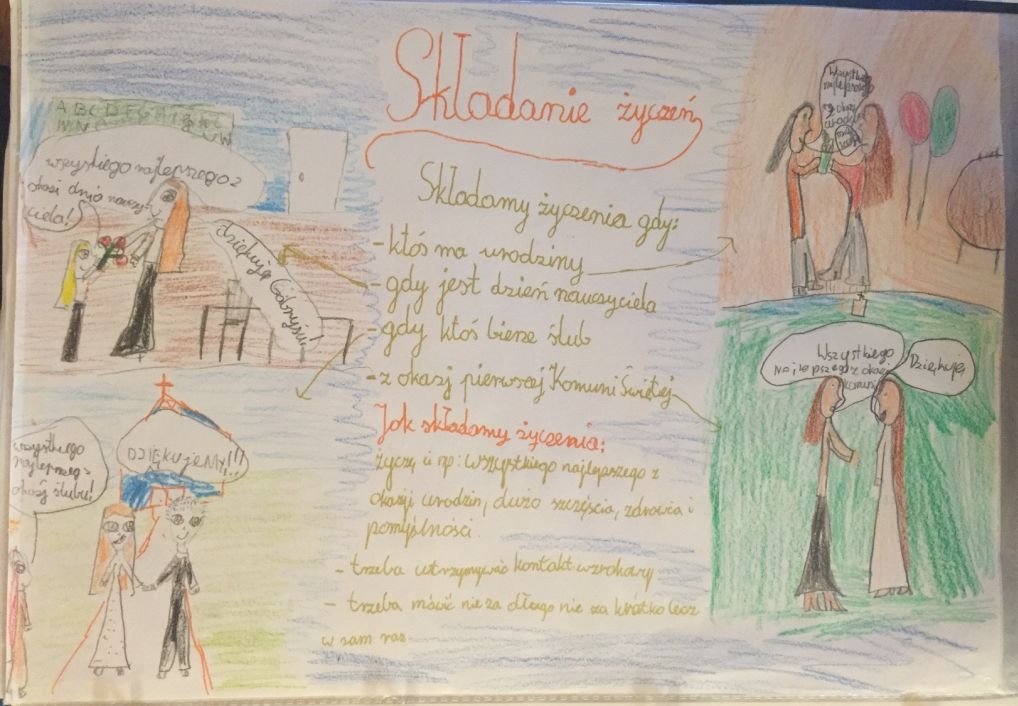 Składanie życzeń
Składamy życzenia gdy:
- ktoś ma urodziny
- gdy jest dzień nauczyciela
- gdy ktoś bierze ślub
- z okazj pierwszej Komuni Świętej
Jak składamy życzenia:
życzę ci np: Wszystkiego najlepszego z
okazji urodzin, dużo szczęścia, zdrowia i
pomyślności.
- trzeba utrzymywać kontakt wzrokowy
- trzeba mówić nie za długo nie za krótko lecz
w sam raz
A B C D E F G H I
M N
U W
wszystkiego najlepszego z
okazi dnia nauczy-
ciela!
dziękuję
wszystkiego
najlepszego z
okazj ślubu!
DZIĘKUJEMY!!!
Wszystkiego
najlepszego
z okazj
Wszystkiego
Najlepszego z okazj
komuni
Dziękuję